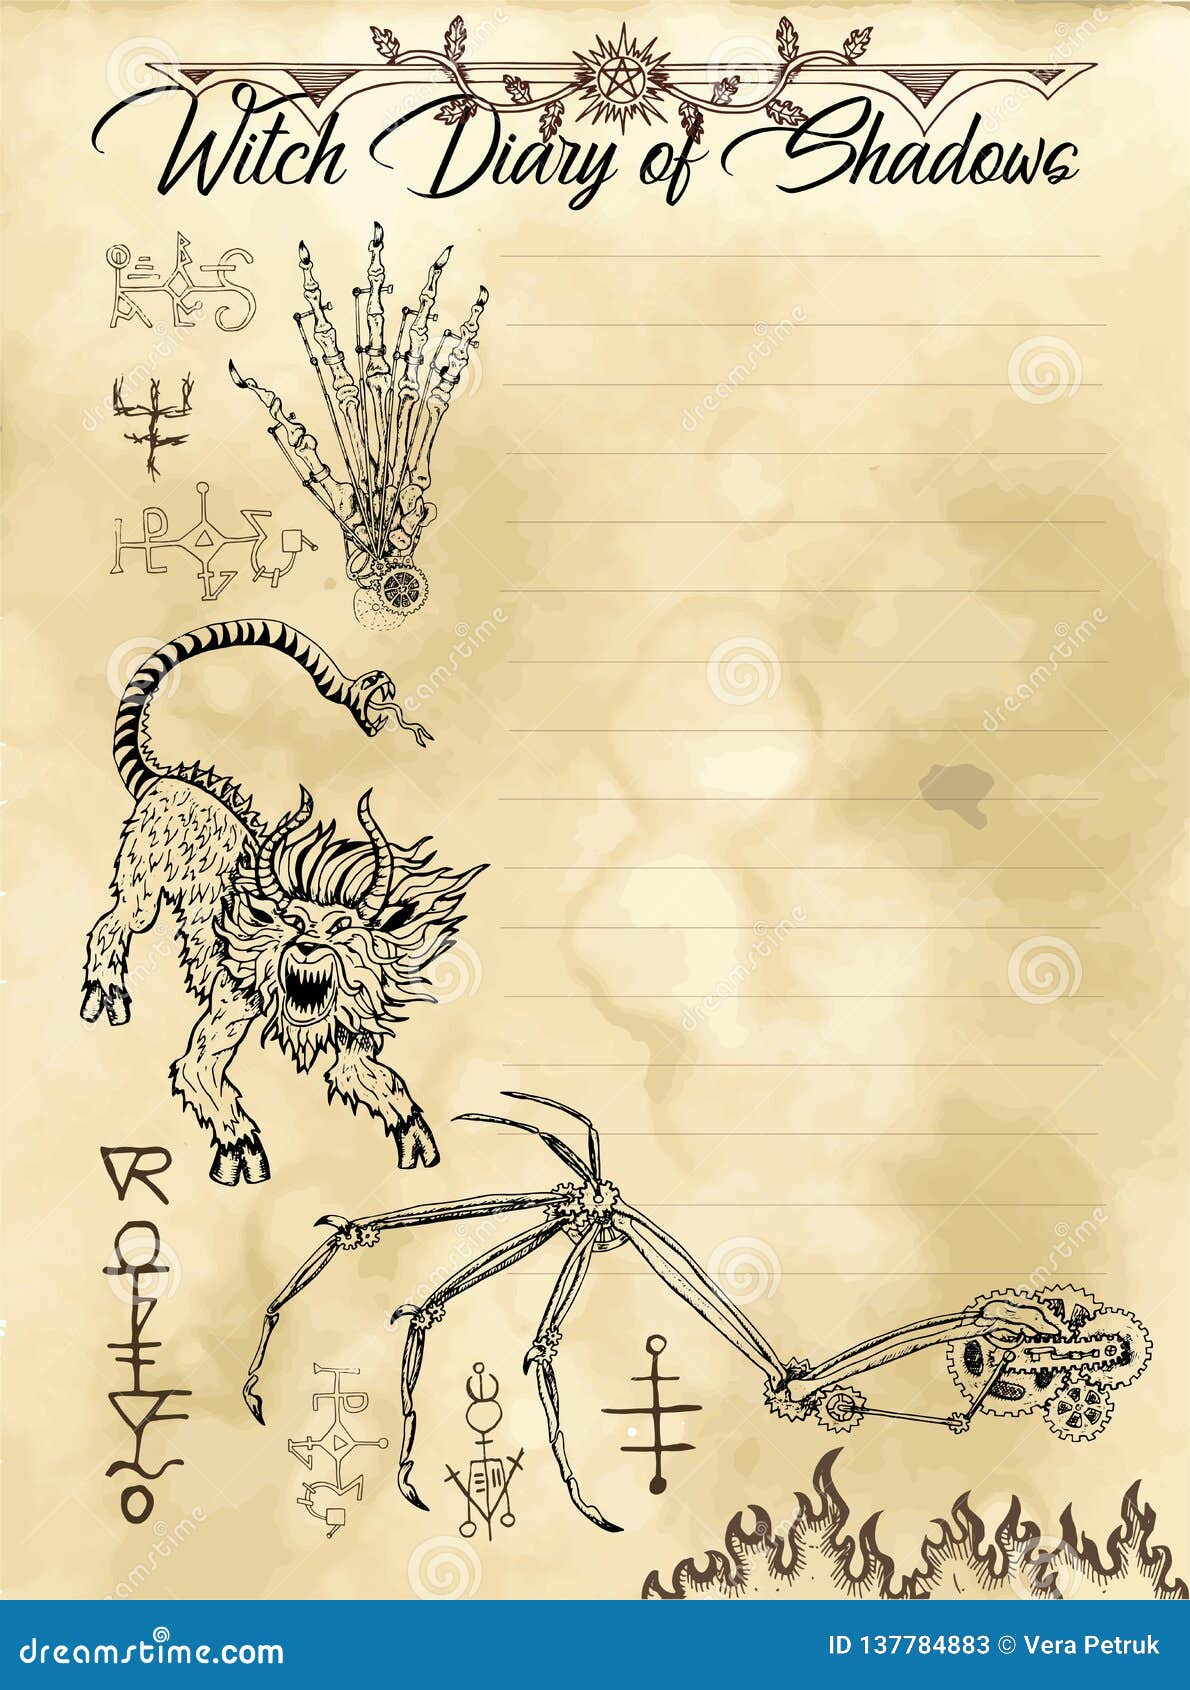 Witch Diary of Shadows
dreamstime
dreamstime.com
ID 137784883 © Vera Petruk